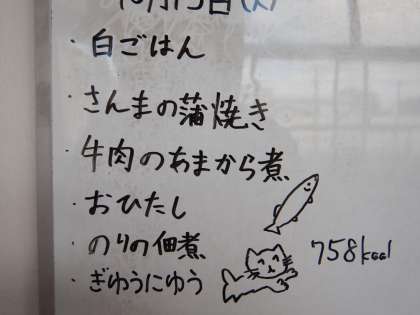 10月15日(火)
・白ごはん
・さんまの蒲焼き
・牛肉のあまから煮
・おひたし
・のりの佃煮
・ぎゅうにゅう
758kcal